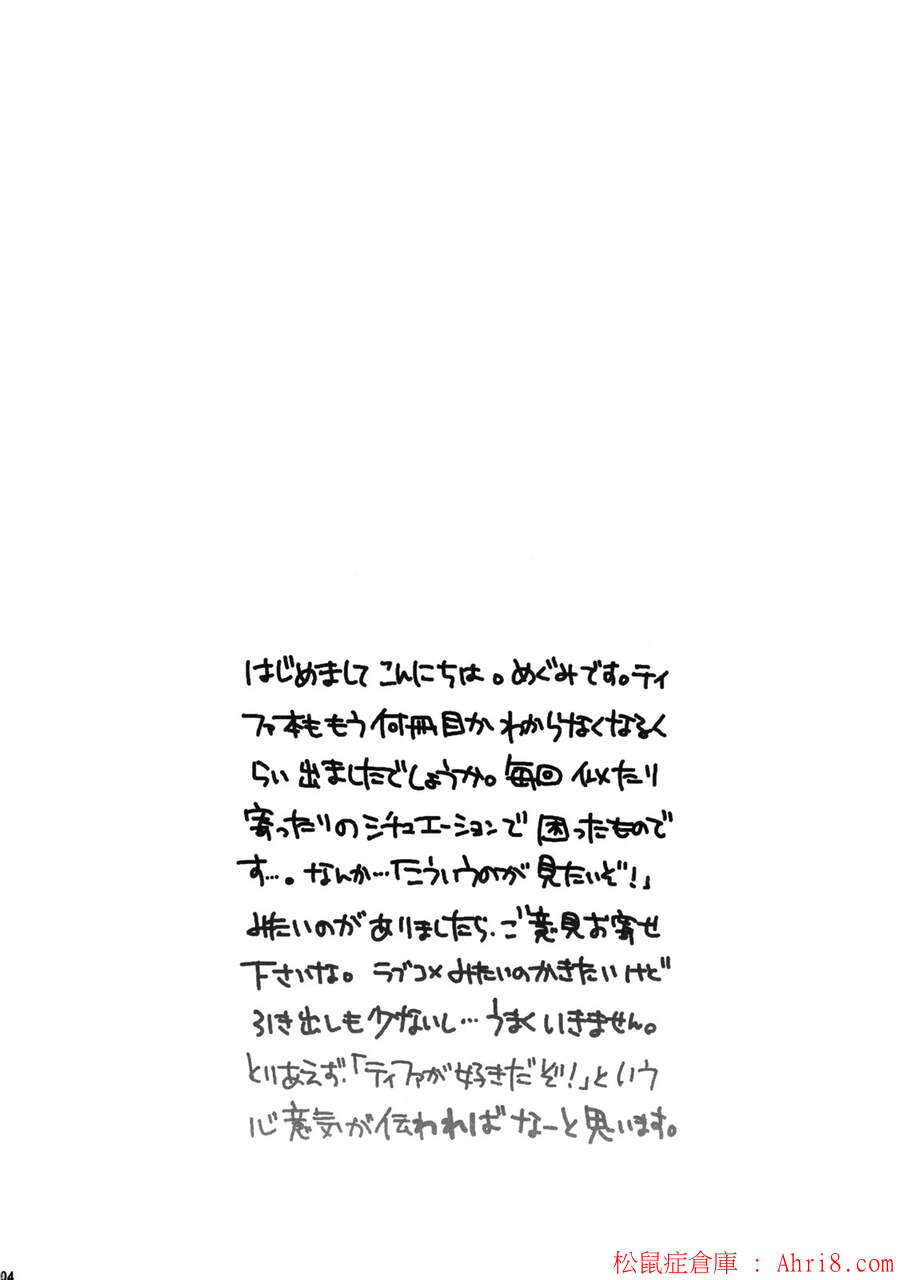 はじめまして こんにちは。めぐみです。ティ
ファ本ももう何冊目か わからなくなるく
らい 出ましたでしょうか。毎回 似たり
寄ったりのシチュエーションで 困ったもので
す…。なんか…「こういうのが 見たいぞ!」
みたいのがありましたら、ご意見お寄せ
下さいな。ラブコメみたいのかきたいけど
引き出しも少ないし…うまくいきません。
とりあえず、「ティファが好きだぞ!」という
心意気が伝わればなーと思います。
04
松鼠症倉庫 : Ahri8.com